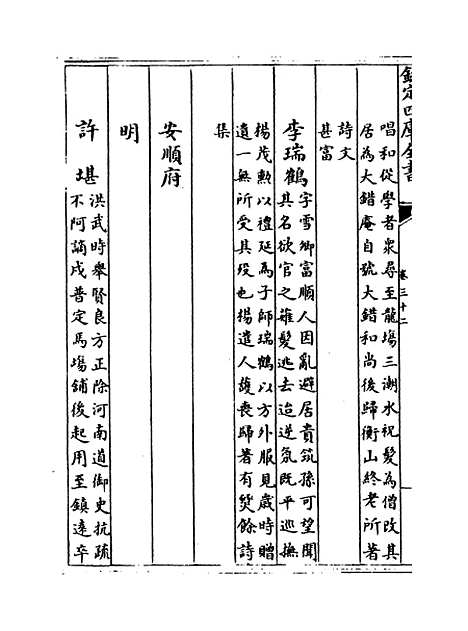 欽定四庫全書
卷三十二
唱和從學者衆尋至龍塲三潮水祝髪為僧改其
居為大錯庵自號大錯和尚後歸衡山終老所著
詩文
甚富
李瑞鶴
字雪鄉富順人因亂避居貴筑孫可望聞
其名欲官之薙髪逃去迨逆氛既平巡撫
楊茂勲以禮延為子師瑞鶴以方外服見歳時贈
遺一無所受其殁也楊遣人䕶喪歸著有焚餘詩
集
安順府
明
許堪
洪武時舉賢良方正除河南道御史抗疏
不阿謫戍普定馬塲鋪後起用至鎮遠卒